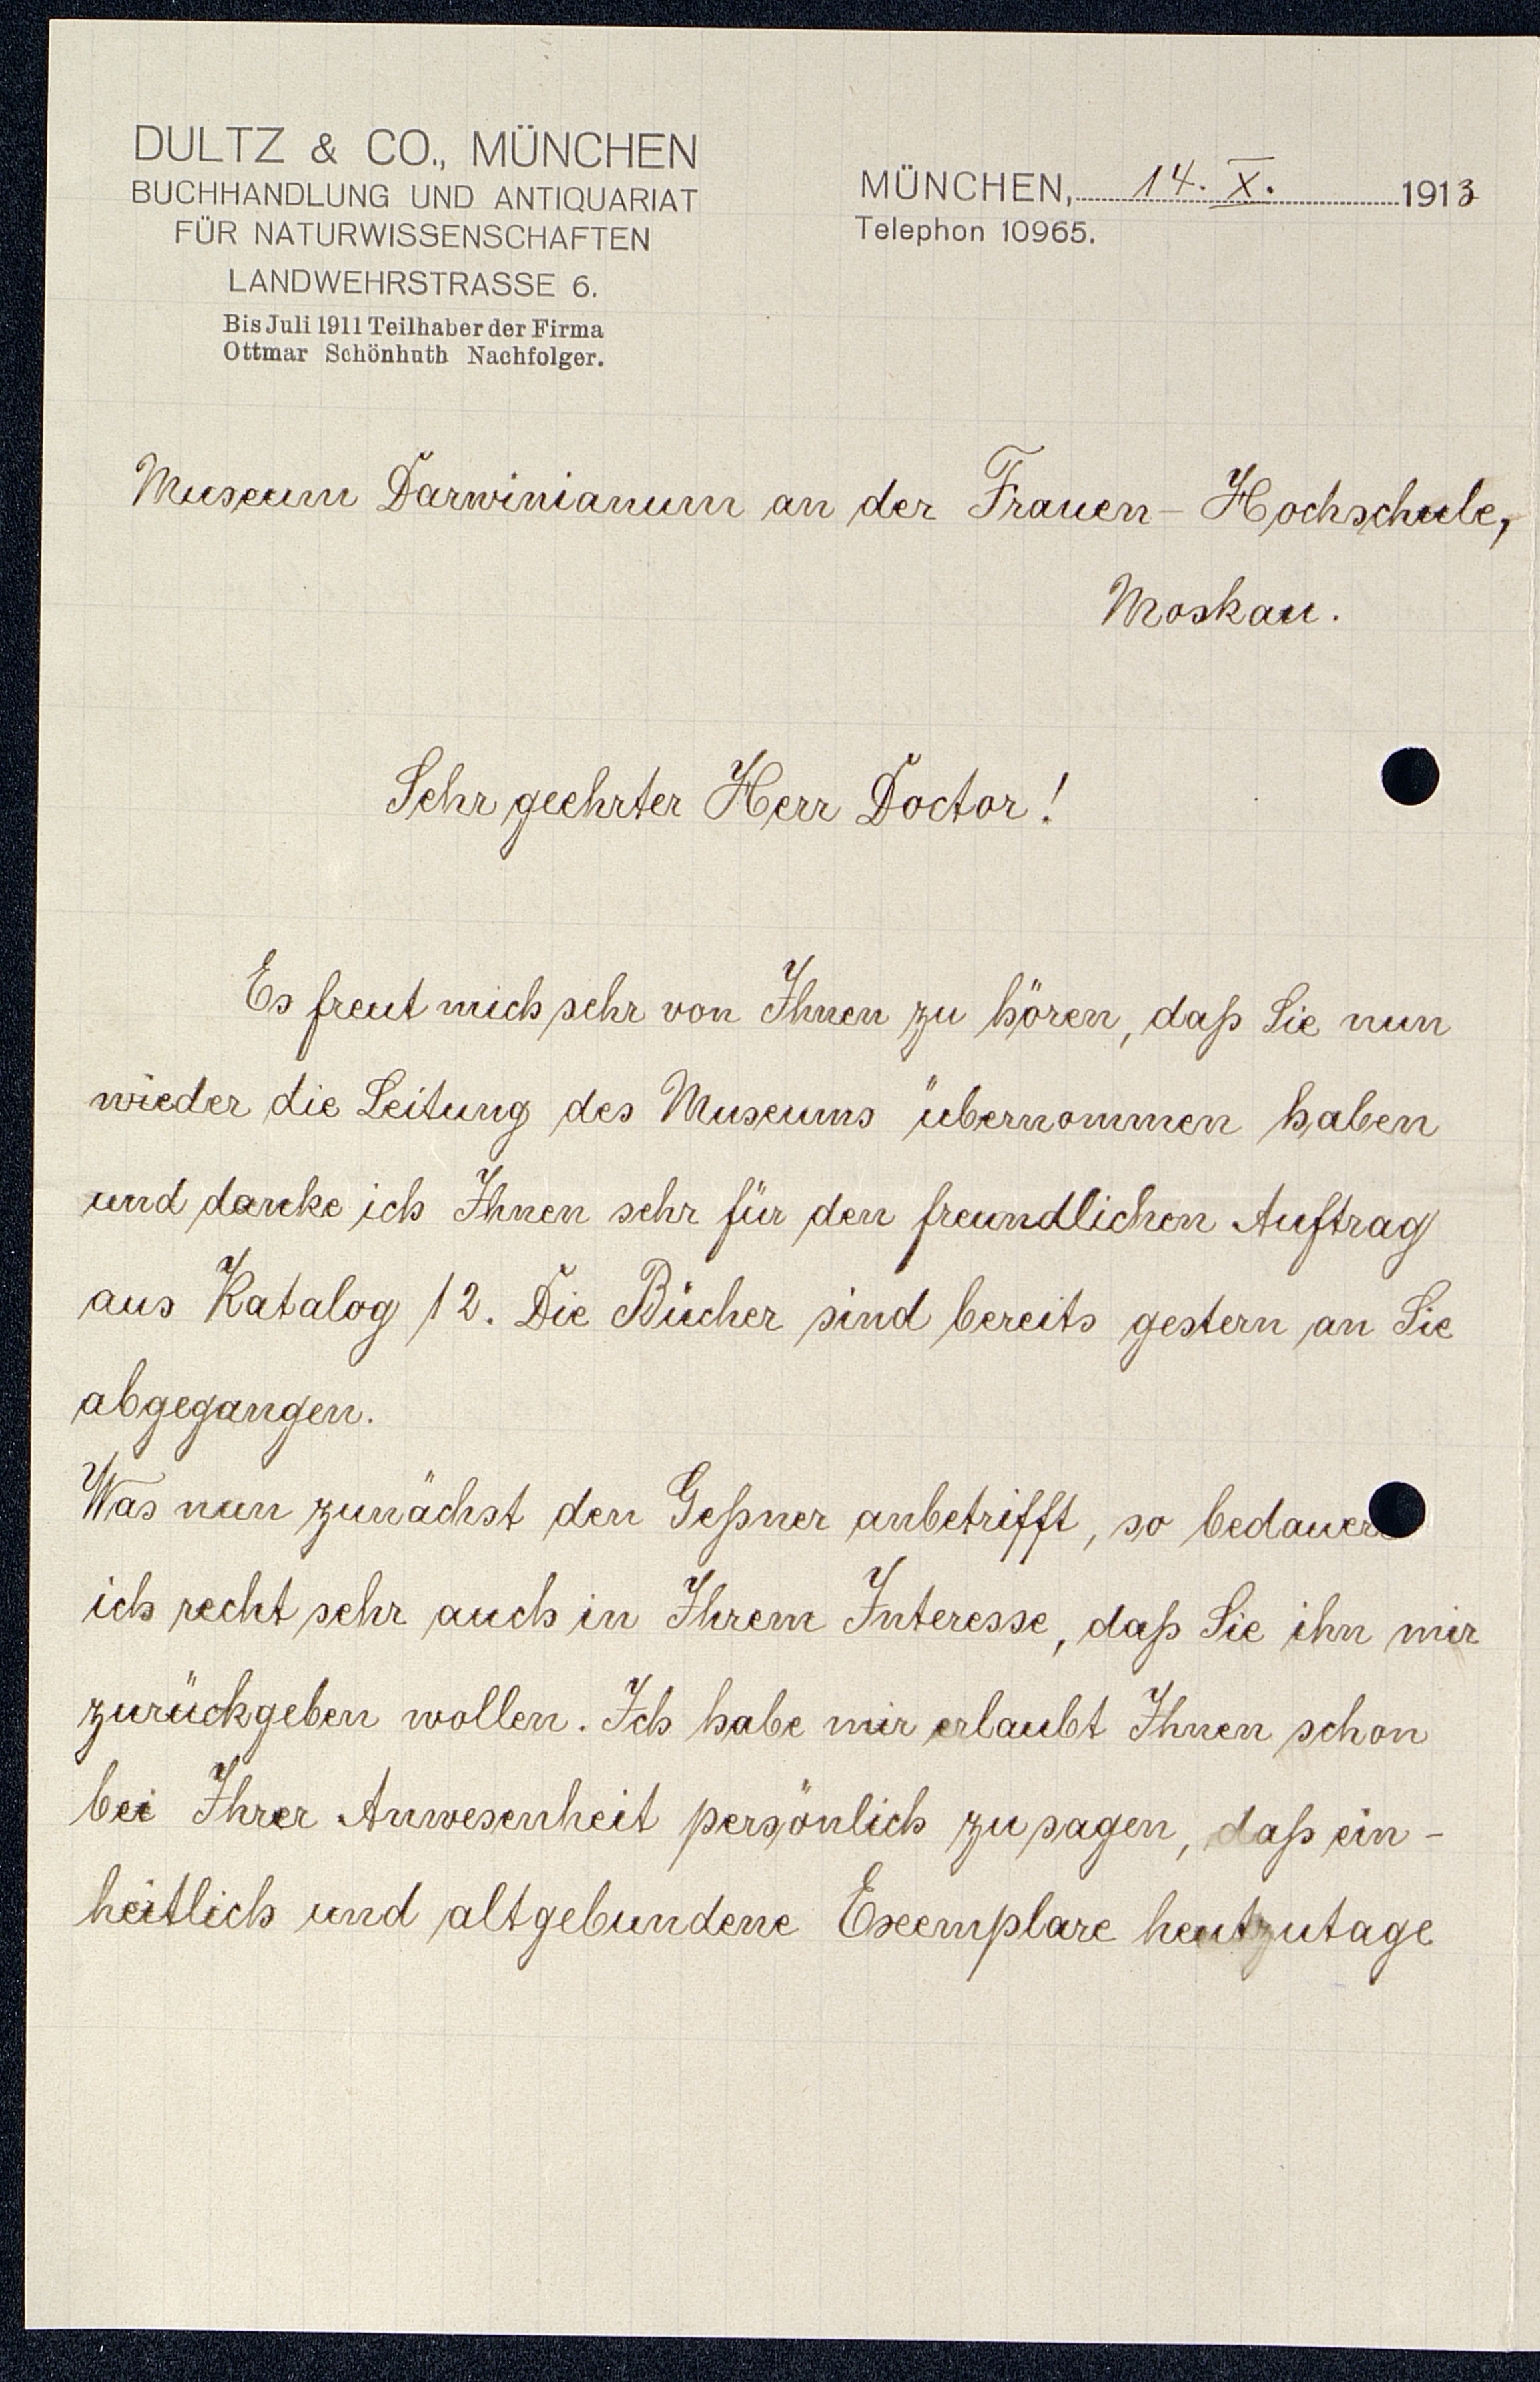 DULTZ & CO., MÜNCHEN
BUCHHANDLUNG UND ANTIQUARIAT
FÜR NATURWISSENSCHAFTEN
LANDWEHRSTRASSE 6.
Bis Juli 1911 Teilhaber der Firma
Ottmar Schönhuth Nachfolger.
MÜNCHEN, 14. X. 1913
Telephon 10965.
Museum Darwinianum an der Frauen-Hochschule,
Moskau.
Sehr geehrter Herr Doctor!
Es freut mich sehr von Ihnen zu hören, daß Sie nun
wieder die Leitung des Museums übernommen haben
und danke ich Ihnen sehr für den freundlichen Auftrag
aus Katalog 12. Die Bücher sind bereits gestern an Sie
abgegangen.
Was nun zunächst den Geßner anbetrifft, so bedauere
ich recht sehr auch in Ihrem Interesse, daß Sie ihn mir
zurückgeben wollen. Ich habe mir erlaubt Ihnen schon
bei Ihrer Anwesenheit persönlich zu sagen, daß ein-
heitlich und altgebundene Exemplare heutzutage